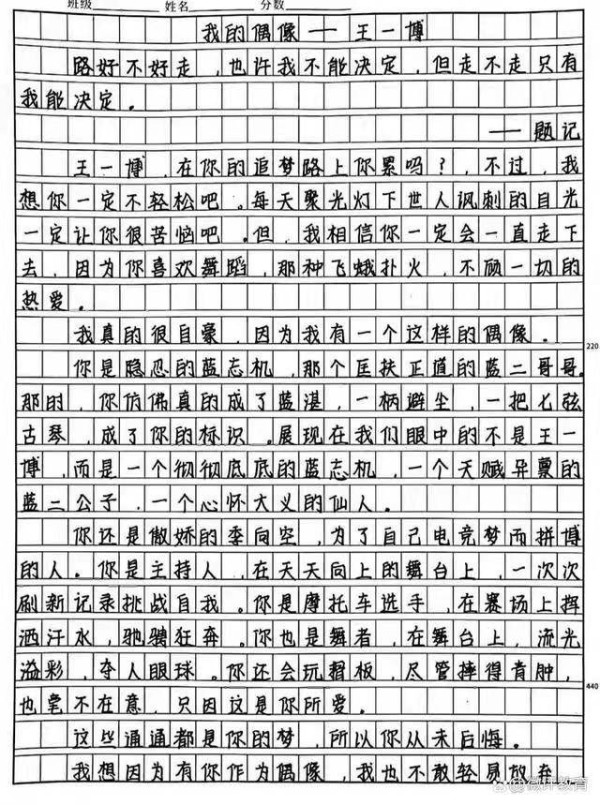 班级 姓名 分数
我的偶像——王一博
路好不好走，也许我不能决定，但走不走只有
我能决定。
——题记
王一博，在你的追梦路上你累吗？，不过，我
想你一定不轻松吧。每天聚光灯下世人讽刺的目光
一定让你很苦恼吧。但，我相信你一定会一直走下
去，因为你喜欢舞蹈，那种飞蛾扑火，不顾一切的
热爱。
我真的很自豪，因为我有一个这样的偶像。
220
你是隐忍的蓝忘机，那个匡扶正道的蓝二哥哥。
那时，你仿佛真的成了蓝湛，一柄避尘，一把七弦
古琴，成了你的标识。展现在我们眼中的不是王一
博，而是一个彻彻底底的蓝忘机，一个天贼异禀的
蓝二公子，一个心怀大义的仙人。
你还是傲娇的季向空，为了自己电竞梦而拼博
的人。你是主持人，在天天向上的舞台上，一次次
刷新记录挑战自我。你是摩托车选手，在赛场上挥
洒汗水，驰骋狂奔。你也是舞者，在舞台上，流光
溢彩，夺人眼球。你还会玩滑板，尽管摔得青肿，
440
也毫不在意，只因这是你所爱。
这些通通都是你的梦，所以你从未后悔。
我想因为有你作为偶像，我也不敢轻易放弃